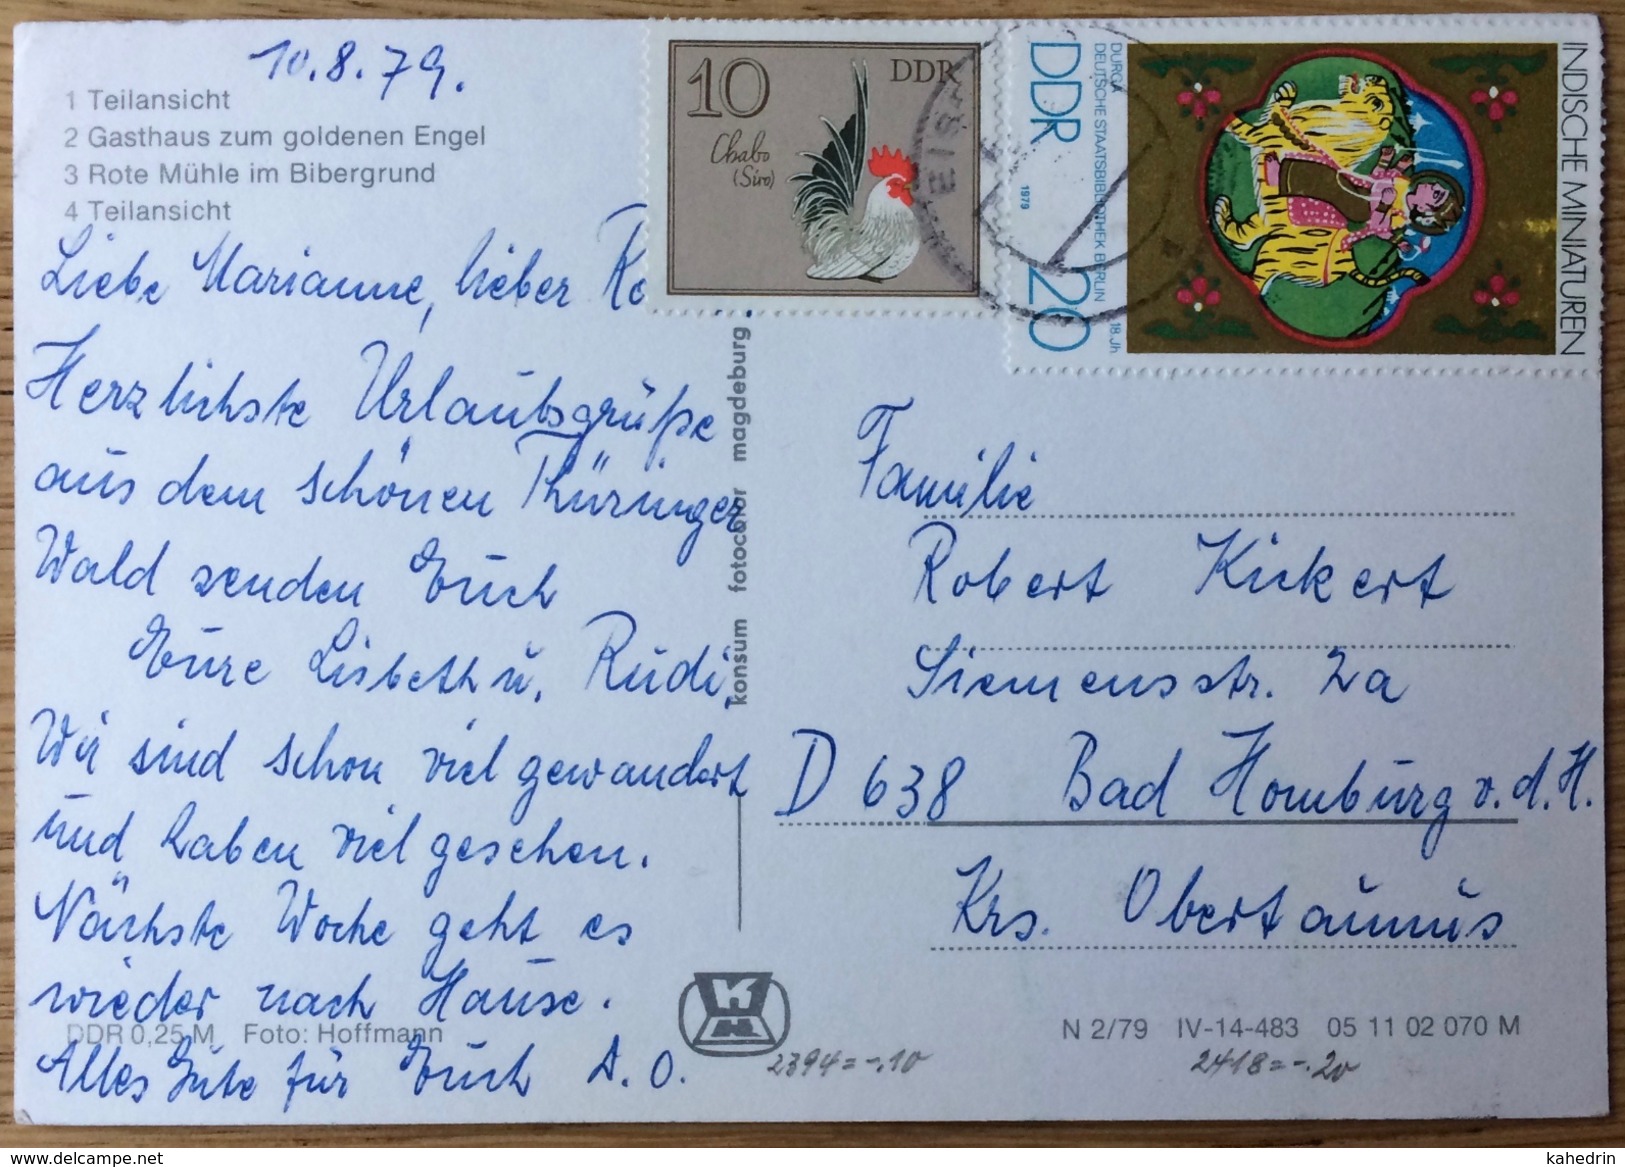 10.8.79.
1 Teilansicht
2 Gasthaus zum goldenen Engel
3 Rote Mühle im Bibergrund
4 Teilansicht
Liebe Marianne, lieber
Herzlichste Urlaubsgrüße
aus dem schönen Thüringer
Wald senden Euch
Eure Lisbeth u. Rudi,
Wir sind schon viel gewandert
und haben viel gesehen.
Nächste Woche geht es
wieder nach Hause.
Alles Gute für Euch D.O.
DDR 0,25 M Foto: Hoffmann
konsum fotocolor magdeburg
10 DDR
Chabo
(Siro)
DDR 20
1979
DURGA
DEUTSCHE STAATSBIBLIOTHEK BERLIN
18.Jh
INDISCHE MINIATUREN
Familie
Robert Kickert
Siemensstr. 2a
D 638 Bad Homburg v.d.H.
Krs. Obertaunus
N 2/79 IV-14-483 05 11 02 070 M
2394=-.10 2418=-.20
www.delcampe.net
kahedrin